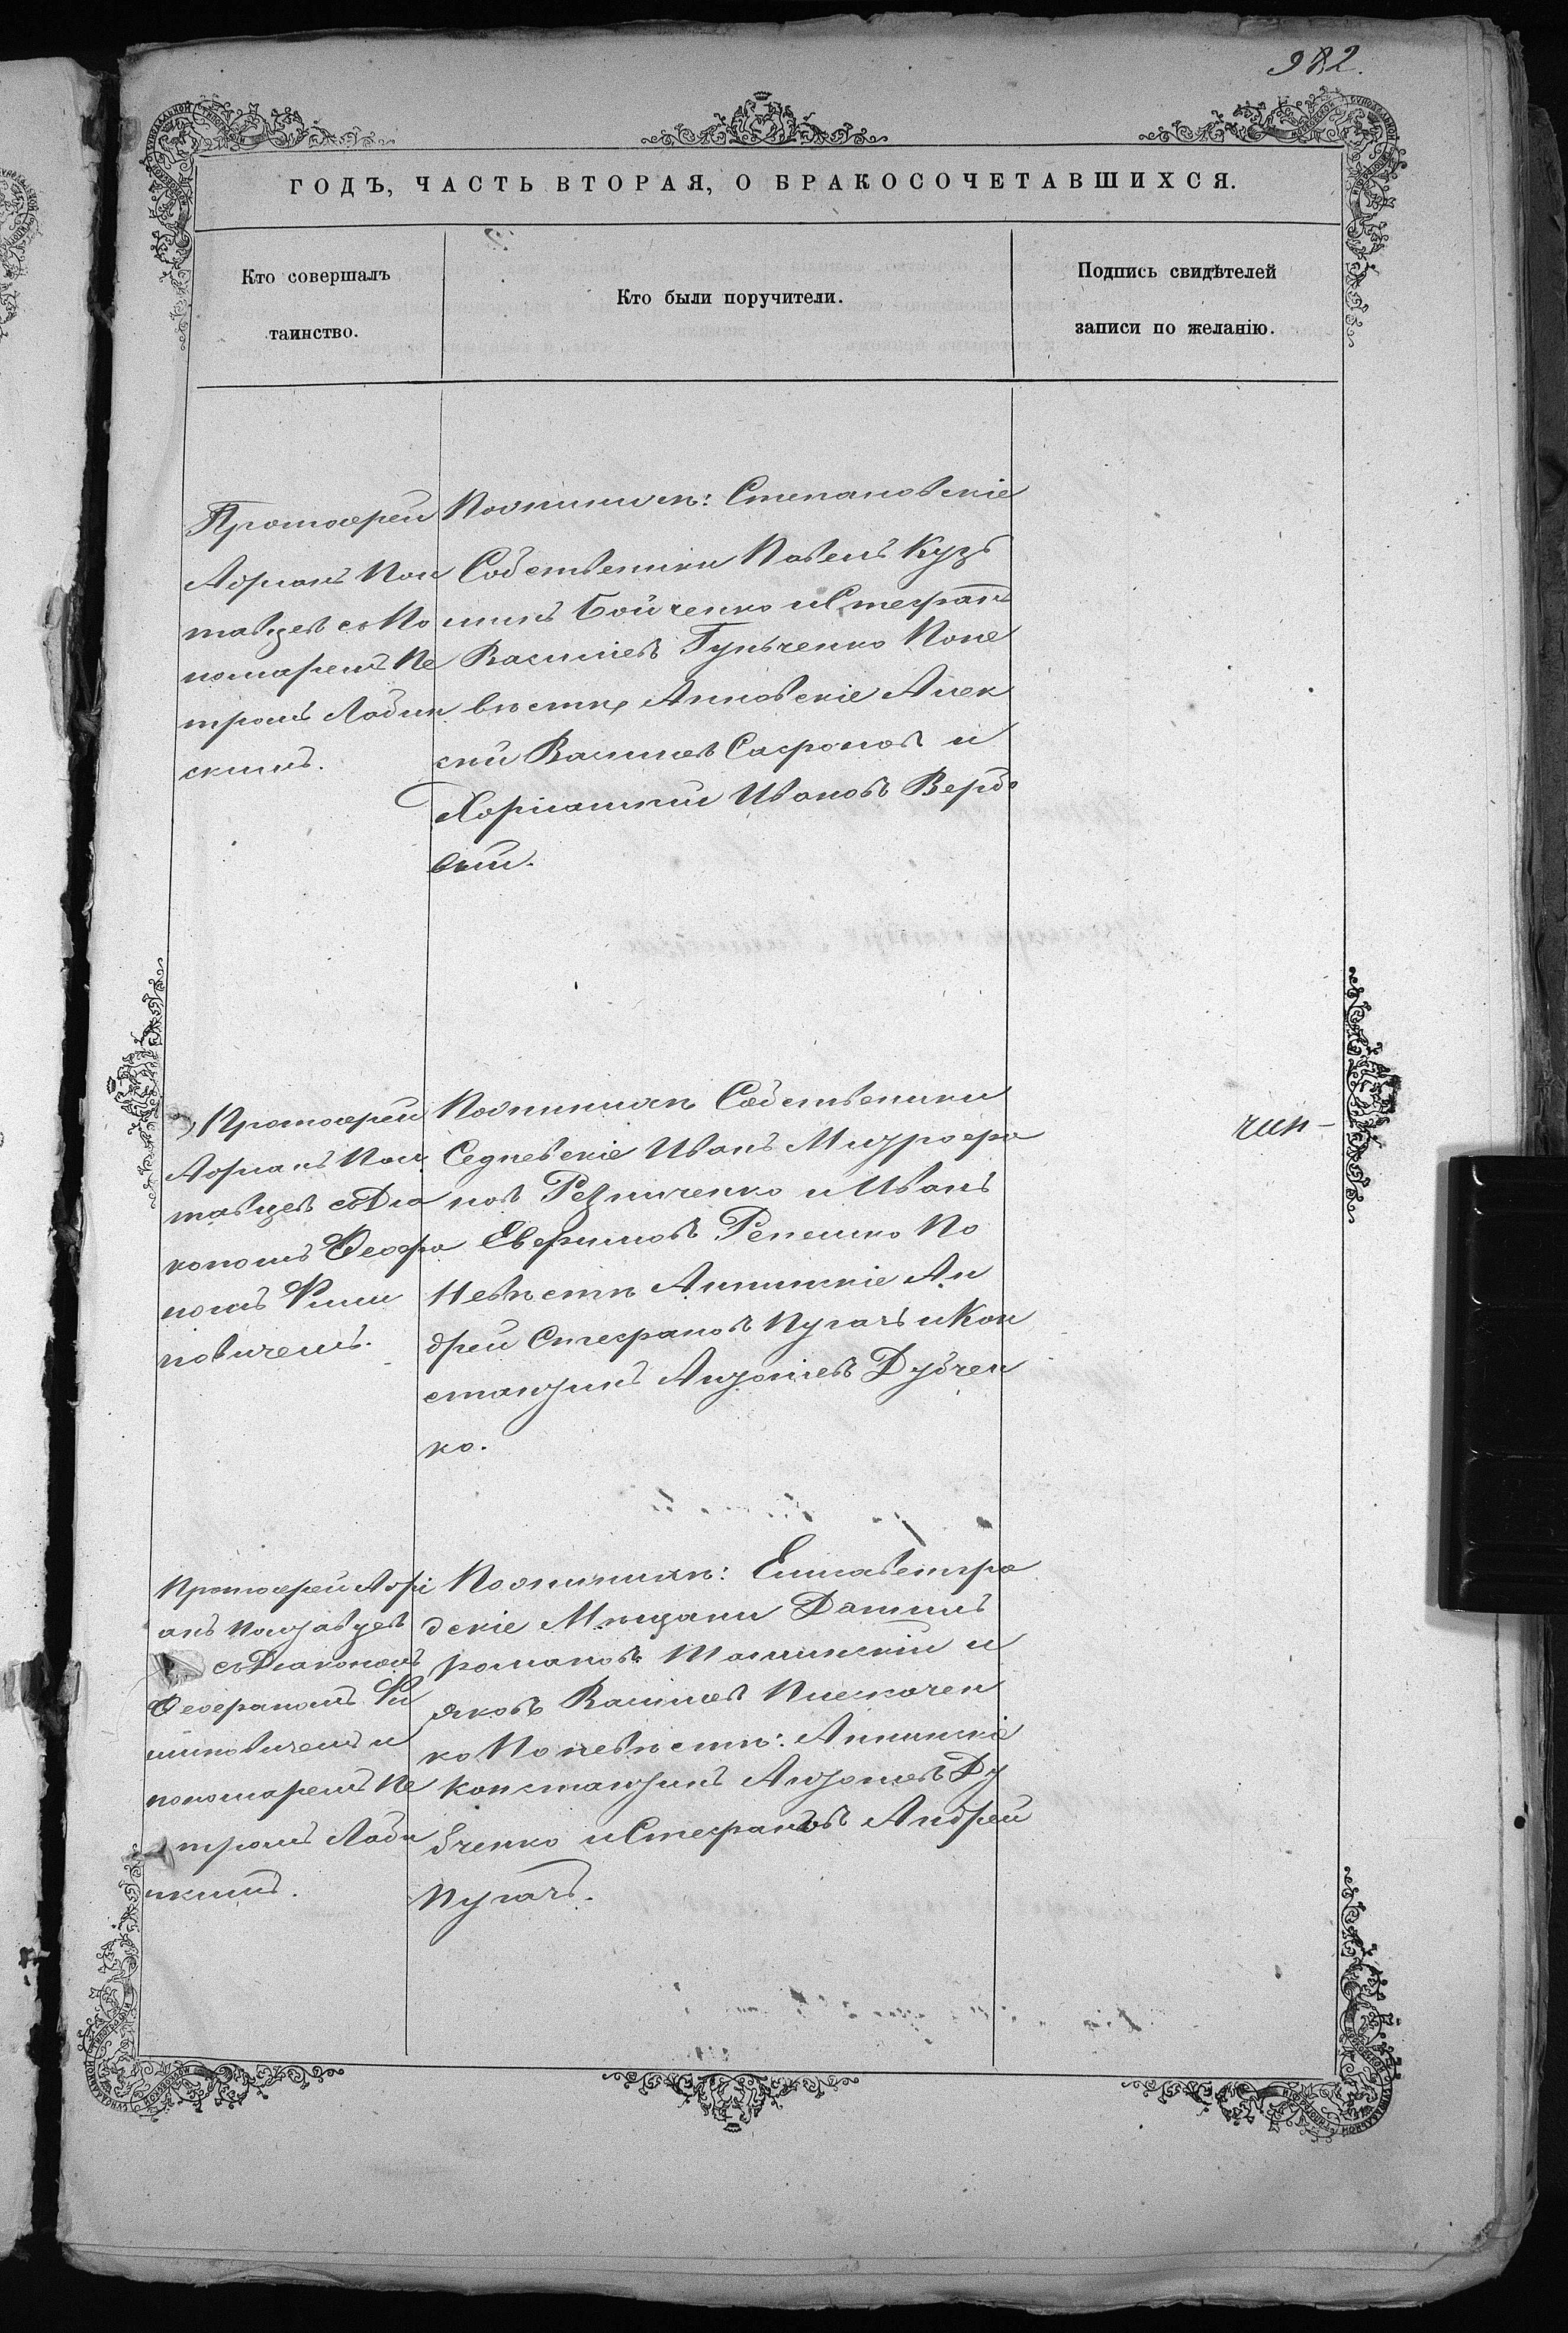 982.
ГОДЪ, ЧАСТЬ ВТОРАЯ, О БРАКОСОЧЕТАВШИХСЯ.
Кто совершалъ
таинство.
Кто были поручители.
Подпись свидѣтелей
записи по желанію.
Протоерей
Адріанъ Пол
тавцевъ съ По
номаремъ Пе
тромъ Лобин
скимъ.
По женихѣ: Степановскіе
Собственики Павелъ Кузь
минъ Бойченко и Стефанъ
Василіевъ Гульченко По не
вѣстѣ Анновскіе Алек
сѣй Василіевъ Сафроновъ и
Харлампій Ивановъ Вербо
вый.
Протоерей
Адріанъ Пол
тавцевъ съ Діа
кономъ Феофа
номъ Фили
повичемъ.
По женихѣ Собственики
Седневскіе Иванъ Митрофа
новъ Резниченко и Иванъ
Евфимовъ Репешко По
Невѣстѣ Аннинскіе Ан
дрей Стефановъ Пугачъ и Кон
стантинъ Антоніевъ Дубчен
ко.
Протоерей Адрі
анъ Полтавцевъ
съ Діакономъ
Феофаномъ Фи
липовичемъ и
пономаремъ Пе
тромъ Лоби
нскимъ.
По женихѣ: Елисаветгра
дскіе Мѣщане Даніилъ
романовъ и
яковъ Василіевъ Плескачен
ко По невѣстѣ: Аннинскіе
Константинъ Антоніевъ Ду
бченко и Стефановъ Андрей
Пугачъ.